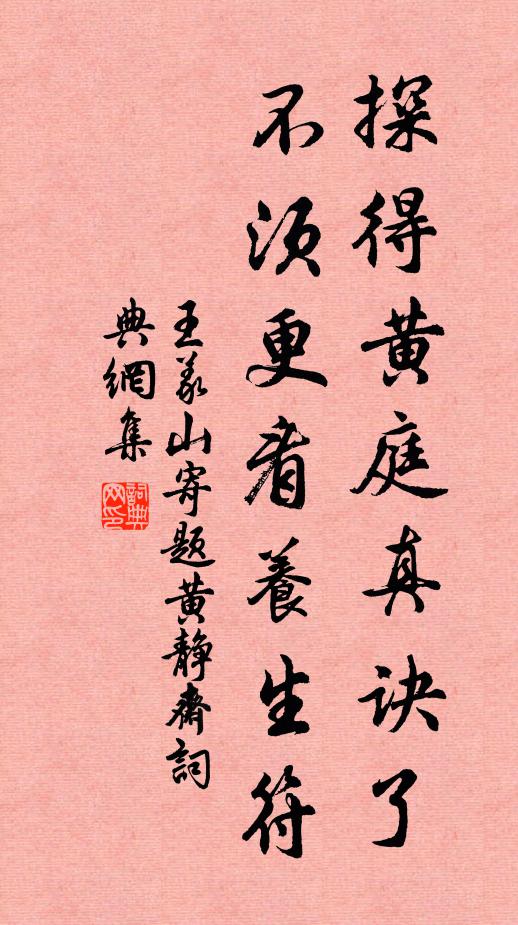 探得黄庭真诀了
不须更看養生符
王義山寄题黄静齋詞
典網集
詞典网印